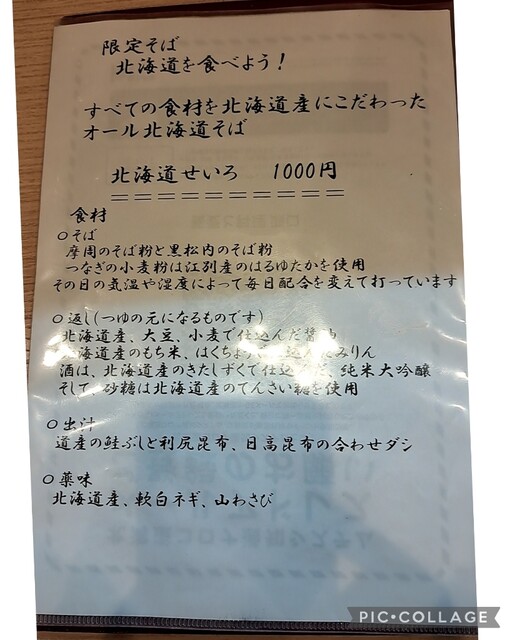 限定そば
北海道を食べよう!
すべての食材を北海道産にこだわった
オール北海道そば
北海道せいろ 1000円
==========
食材
○そば
摩周のそば粉と黒松内のそば粉
つなぎの小麦粉は江別産のはるゆたかを使用
その日の気温や湿度によって毎日配合を変えて打っています
○返し(つゆの元になるものです)
北海道産、大豆、小麦で仕込んだ醤油
北海道のもち米、はくちょう みりん
酒は、北海道産のきたしずくで仕込 、純米大吟醸
そして、砂糖は北海道産のてんさい糖を使用
○出汁
道産の鮭ぶしと利尻昆布、日高昆布の合わせダシ
○薬味
北海道産、軟白ネギ、山わさび
PIC•COLLAGE